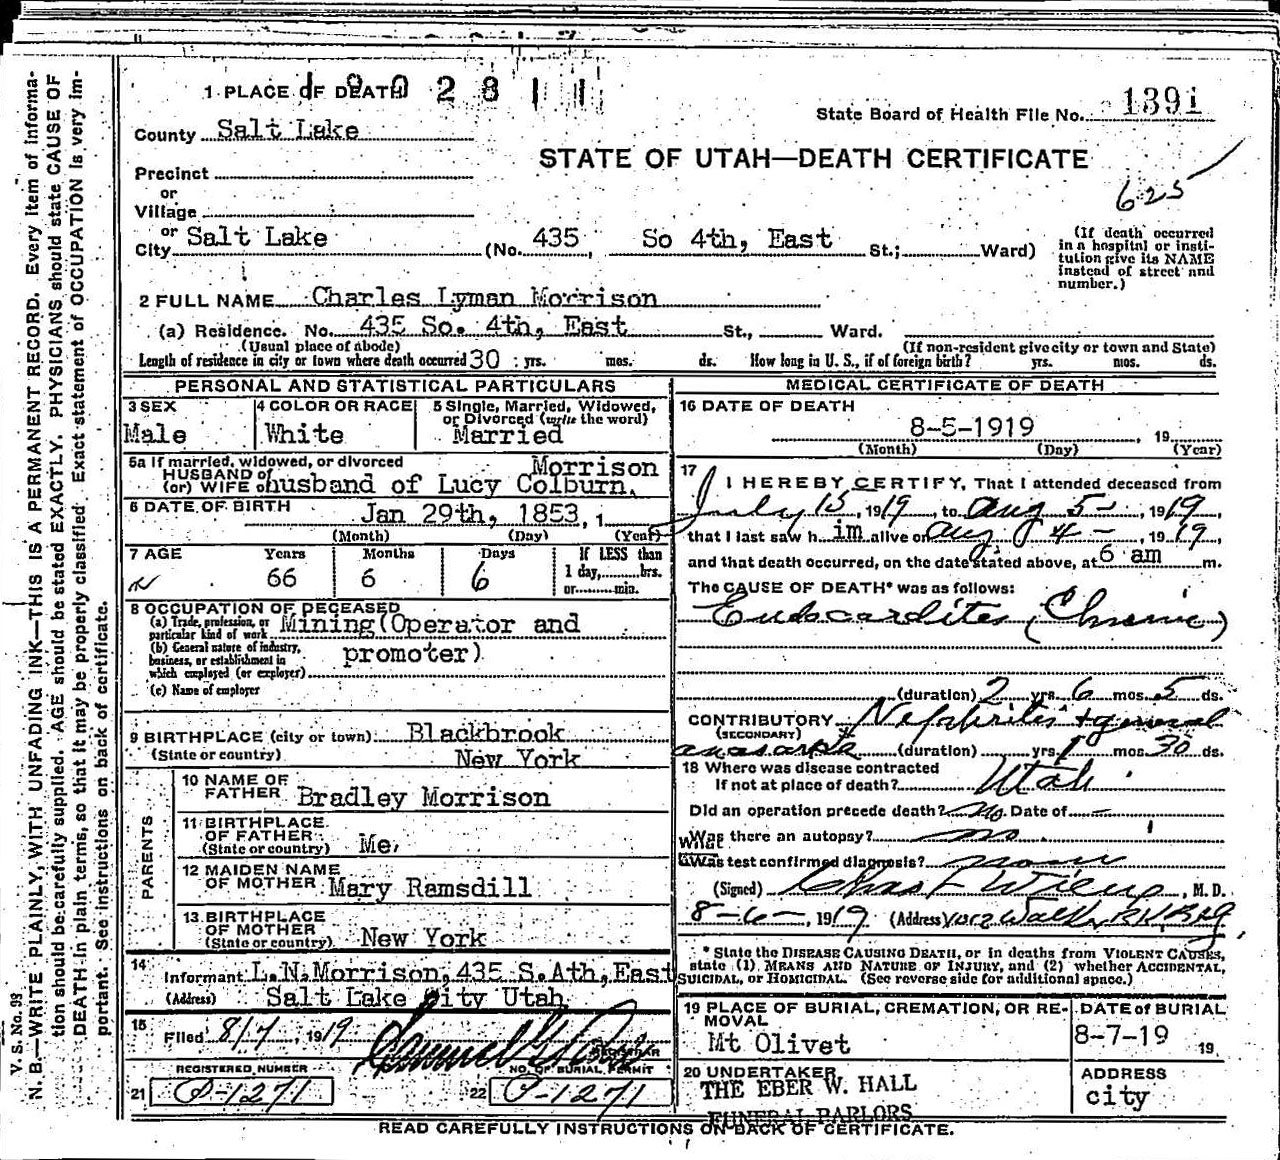 1 PLACE OF DEATH
1902811
State Board of Health File No. 1391
County Salt Lake
STATE OF UTAH—DEATH CERTIFICATE
Precinct
or
Village
625
or
City Salt Lake (No. 435 So 4th, East St.; Ward)
(If death occurred in a hospital or insti-
tution give its NAME
instead of street and
number.)
2 FULL NAME Charles Lyman Morrison
(a) Residence. No. 435 So. 4th, East St., Ward.
(Usual place of abode) (If non-resident give city or town and State)
Length of residence in city or town where death occurred 30 yrs. mos. ds. How long in U. S., if of foreign birth? yrs. mos. ds.
PERSONAL AND STATISTICAL PARTICULARS
3 SEX
Male
4 COLOR OR RACE
White
5 Single, Married, Widowed,
or Divorced (write the word)
Married
5a If married, widowed, or divorced
HUSBAND of
(or) WIFE of
Morrison
husband of Lucy Colburn,
6 DATE OF BIRTH Jan 29th, 1853, 1
(Month) (Day) (Year)
7 AGE Years Months Days If LESS than
66 6 6 1 day, hrs.
or min.
8 OCCUPATION OF DECEASED
(a) Trade, profession, or
particular kind of work Mining(Operator and
(b) General nature of industry,
business, or establishment in
which employed (or employer) promoter)
(c) Name of employer
9 BIRTHPLACE (city or town) Blackbrook
(State or country) New York
PARENTS
10 NAME OF
FATHER Bradley Morrison
11 BIRTHPLACE
OF FATHER
(State or country) Me,
12 MAIDEN NAME
OF MOTHER Mary Ramsdill
13 BIRTHPLACE
OF MOTHER
(State or country) New York
14
Informant L.N.Morrison,435 S.Ath,East
(Address) Salt Lake City Utah
15
Filed 8/7, 1919
REGISTRAR
REGISTERED NUMBER
21 O-1271
NO. OF BURIAL PERMIT
22 O-1271
MEDICAL CERTIFICATE OF DEATH
16 DATE OF DEATH
8-5-1919, 19
(Month) (Day) (Year)
17
I HEREBY CERTIFY, That I attended deceased from
July 15, 1919, to Aug 5-, 1919,
that I last saw him alive on Aug 4-, 1919,
and that death occurred, on the date stated above, at 6 am m.
The CAUSE OF DEATH* was as follows:
Endocarditis (Chronic)
(duration) 2 yrs. 6 mos. 5 ds.
CONTRIBUTORY Nephritis + general
(SECONDARY)
anasarka (duration) yrs. 1 mos. 30 ds.
18 Where was disease contracted
If not at place of death? Utah
Did an operation precede death? No Date of —
Was there an autopsy? no
What
test confirmed diagnosis? none
(Signed) Chas F Wilcox, M. D.
8-6-, 1919 (Address) 1012 Walker Bk Bldg
* State the DISEASE CAUSING DEATH, or in deaths from VIOLENT CAUSES,
state (1) MEANS AND NATURE OF INJURY, and (2) whether ACCIDENTAL,
SUICIDAL, or HOMICIDAL. (See reverse side for additional space.)
19 PLACE OF BURIAL, CREMATION, OR RE-
MOVAL
Mt Olivet
DATE of BURIAL
8-7-19 19
20 UNDERTAKER
THE EBER W. HALL
FUNERAL PARLORS
ADDRESS
city
READ CAREFULLY INSTRUCTIONS ON BACK OF CERTIFICATE.
V. S. No. 93
N. B.—WRITE PLAINLY, WITH UNFADING INK—THIS IS A PERMANENT RECORD. Every item of informa-
tion should be carefully supplied. AGE should be stated EXACTLY. PHYSICIANS should state CAUSE OF
DEATH in plain terms, so that it may be properly classified. Exact statement of OCCUPATION is very im-
portant. See instructions on back of certificate.